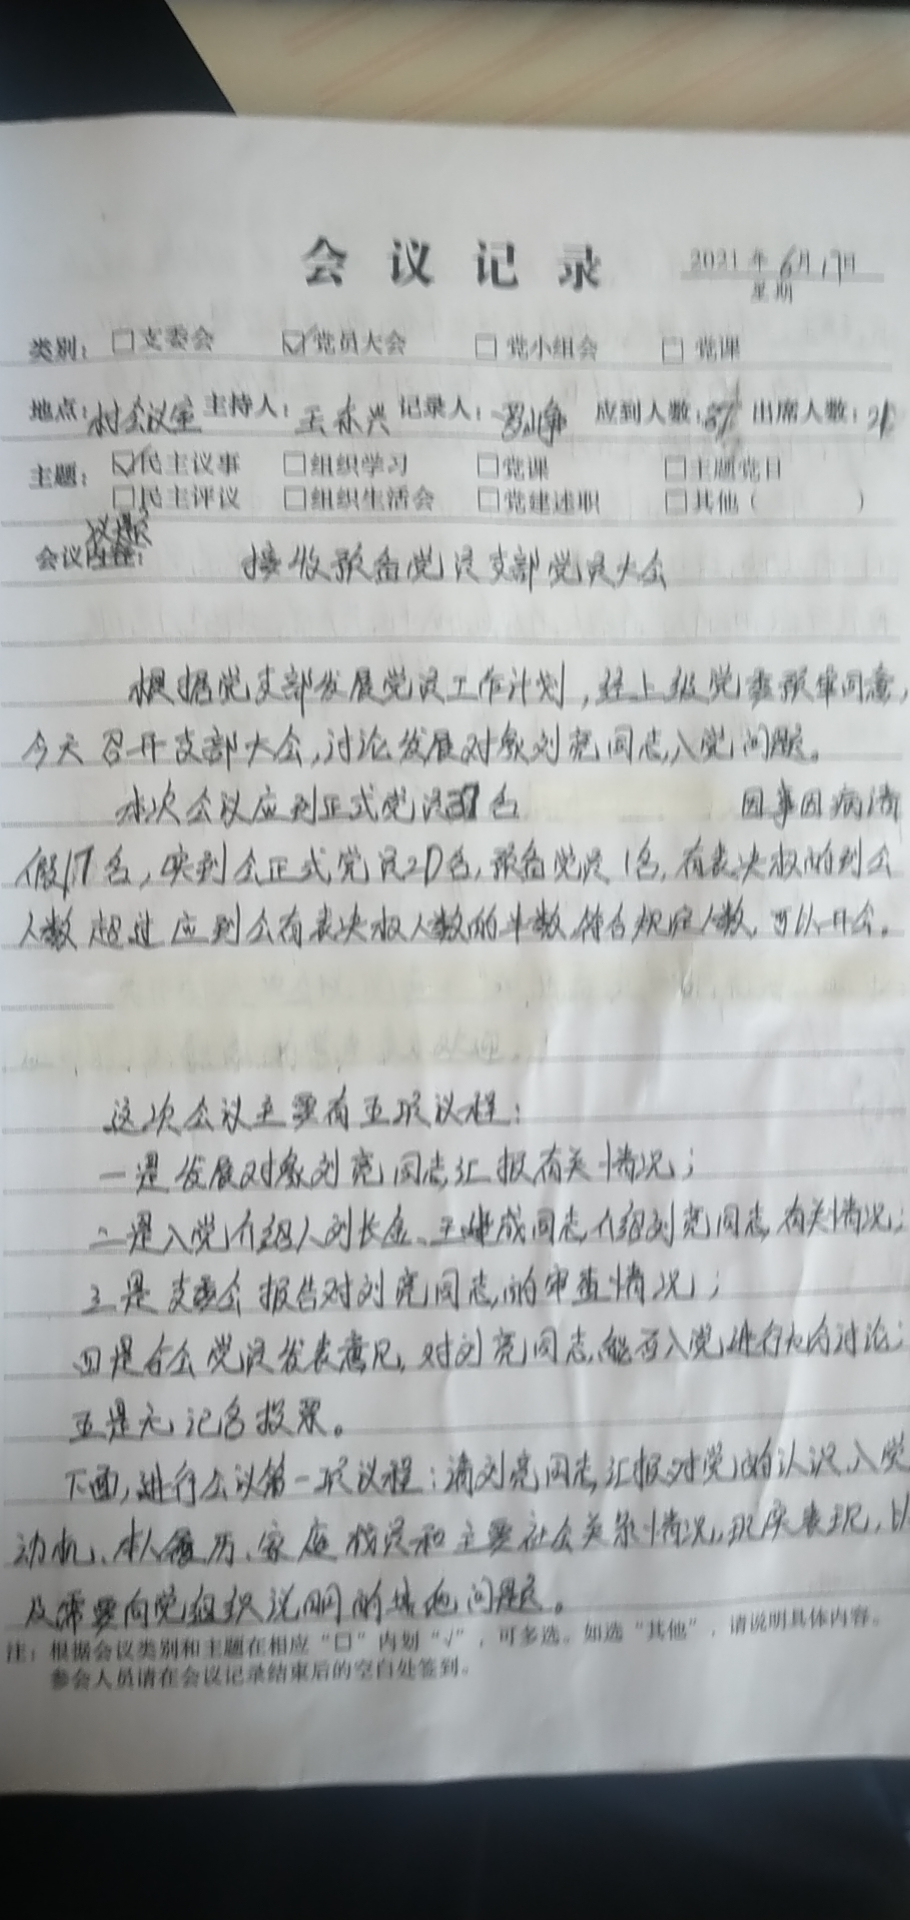 会议记录
2021 年 6月17日
星期
类别： □支委会 ☑党员大会 □党小组会 □党课
地点：村会议室 主持人：王永兴 记录人： 应到人数：37 出席人数：21
主题： ☑民主议事 □组织学习 □党课 □主题党日
□民主评议 □组织生活会 □党建述职 □其他（ ）
议题
会议内容： 接收预备党员支部党员大会
根据党支部发展党员工作计划，经上级党委预审同意，
今天召开支部大会，讨论发展对象刘亮同志入党问题。
本次会议应到正式党员37名 因事因病请
假17名，实到会正式党员20名，预备党员1名，有表决权的到会
人数超过应到会有表决权人数的半数，符合规定人数，可以开会。
这次会议主要有五项议程：
一是发展对象刘亮同志汇报有关情况；
二是入党介绍人刘长金、王继成同志介绍刘亮同志有关情况；
三是支委会报告对刘亮同志的审查情况；
四是与会党员发表意见，对刘亮同志能否入党进行充分讨论；
五是无记名投票。
下面，进行会议第一项议程：请刘亮同志汇报对党的认识、入党
动机、本人履历、家庭成员和主要社会关系情况，现实表现，以
及需要向党组织说明的其他问题。
注：根据会议类别和主题在相应“口”内划“√”，可多选。如选“其他”，请说明具体内容。
参会人员请在会议记录结束后的空白处签到。